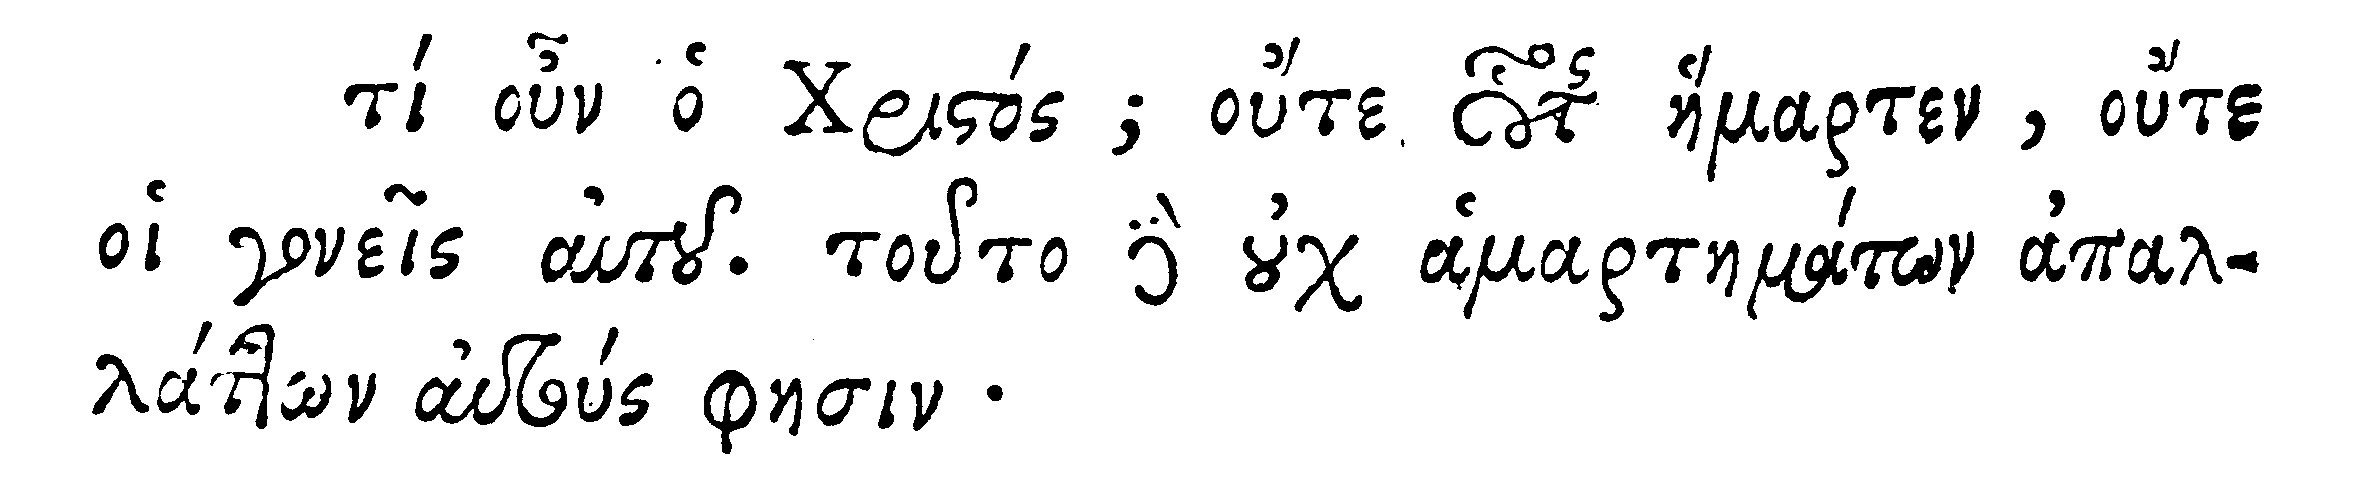 τί οὖν ὁ Χριστός; οὔτε οὗτος ἥμαρτεν, οὔτε
οἱ γονεῖς αὐτοῦ. τοῦτο δὲ οὐχ ἁμαρτημάτων ἀπαλ-
λάττων αὐτούς φησιν.